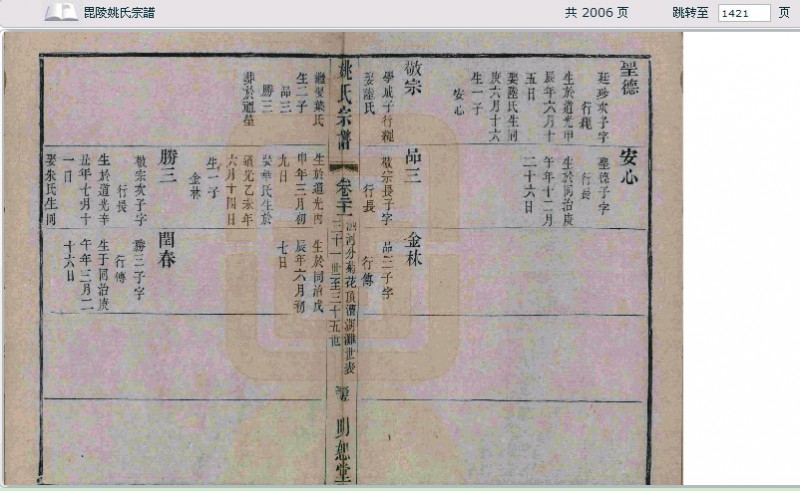 毘陵姚氏宗譜
共 2006 页
跳转至
1421
页
聖德
廷珍次子字
行
生於道光甲
辰年六月十
五日
娶陸氏生同
庚六月十六
生一子
安心
安心
聖德子字
行長
生於同治庚
午年十二月
二十六日
敬宗
學成子行
娶陸氏
品三
敬宗長子字
行長
金林
品三子字
行傳
姚氏宗譜
卷二十一
三十一世至三十五世
明恕堂
繼娶葉氏
生二子
品三
勝三
葬於
生於道光丙
申年三月初
九日
娶華氏生於
道光乙未年
六月十四日
生一子
金林
生於同治戊
辰年六月初
七日
勝三
敬宗次子字
行長
生於道光辛
丑年七月十
一日
娶朱氏生同
閏春
勝三子字
行傳
生于同治庚
午年三月二
十六日